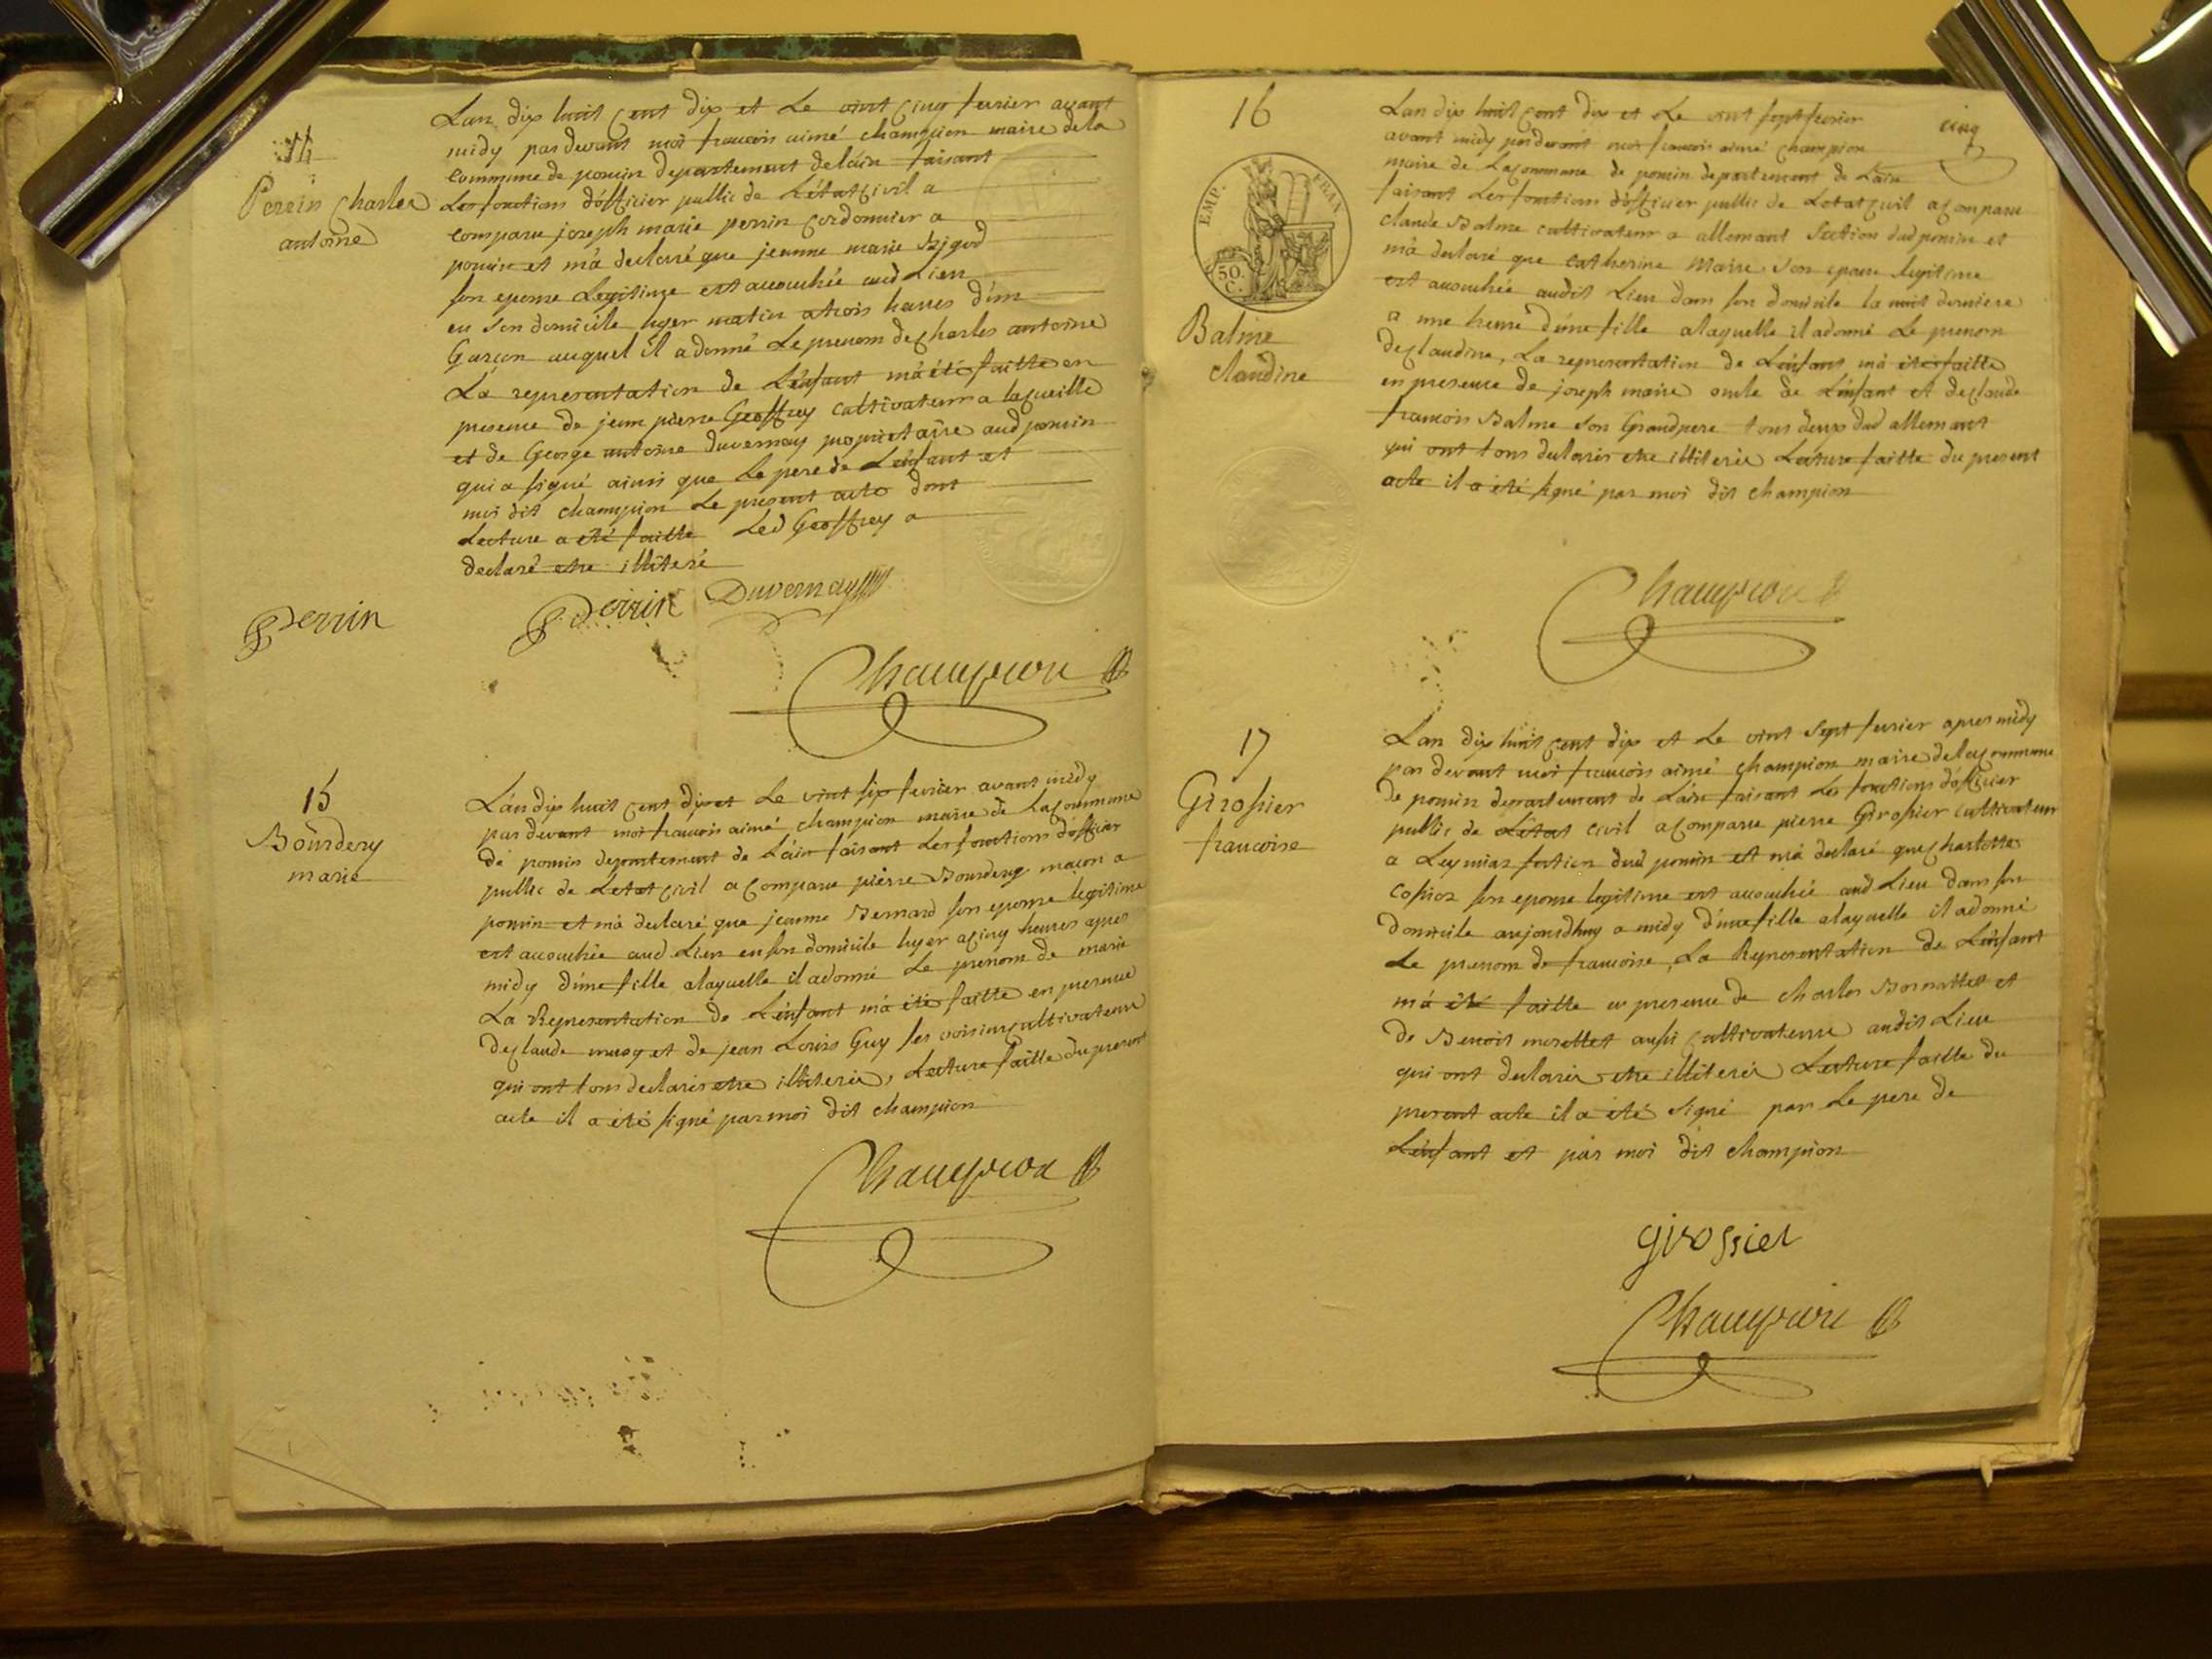 14
Perrin Charles
antoine
Lan dix huit cent dix et Le vint cinq fevrier avant
midy par devant moi francois aimé champion maire de la
commune de poncin departement de lain faisant
Les fonctions d'officier public de L'état civil a
comparu joseph marie perrin cordonnier a
poncin et m'a declaré que jeanne marie
son epouse Legitime est accouchée aud Lieu
en son domicile hyer matin a trois heures d'un
Garçon auquel il a donné Le prenom de charles antoine
La representation de L'enfant m'a été faitte en
presence de jean pierre Geoffrey cultivateur a lacueille
et de George antoine duvernay proprietaire aud poncin
qui a signé ainsi que Le pere de L'enfant et
moi dit champion Le present acte dont
Lecture a été faitte Led Geoffrey a
declaré etre illiteré
Perrin
Perrin Duvernay
Champion
15
Bourdery
marie
L'an dix huit cent dix et Le vint six fevrier avant midy
par devant moi francois aimé champion maire de La commune
de poncin departement de L'ain faisant Les fonctions d'officier
public de Letat civil a comparu pierre Bourdery maçon a
poncin et m'a declaré que jeanne Bernard son epouse legitime
est accouchée aud Lieu en son domicile hyer a cinq heures apres
midy d'une fille a laquelle il a donné Le prenom de marie
La Representation de L'enfant m'a été faitte en presence
de claude et de jean Louis Guy ses voisins cultivateurs
qui ont tous declarés etre illiterés, Lecture faitte du present
acte il a été signé par moi dit champion
Champion
16
cinq
EMP. FRAN
50.
C.
Balme
claudine
Lan dix huit cent dix et Le vint sept fevrier
avant midy par devant moi francois aimé champion
maire de La commune de poncin departement de Lain
faisant Les fonctions d'officier public de Letat civil a comparu
claude Balme cultivateur a allemant Section dud poncin et
m'a declaré que catherine Maire son epouse legitime
est accouchée audit Lieu dans son domicile la nuit derniere
a une heure d'une fille a laquelle il a donné Le prenom
de claudine, La representation de L'enfant m'a été faitte
en presence de joseph maire oncle de L'enfant et de claude
francois Balme son Grandpere tous deux dud allemant
qui ont tous declarés etre illiterés Lecture faitte du present
acte il a été signé par moi dit champion
Champion
17
Girossier
francoise
Lan dix huit cent dix et Le vint sept fevrier apres midy
par devant moi francois aimé champion maire de la commune
de poncin departement de L'ain faisant Les fonctions d'officier
public de L'état civil a comparu pierre Girossier cultivateur
a Leymiaz section dud poncin et m'a declaré que charlotte
cossioz son epouse legitime est accouchée aud Lieu dans son
domicile aujourdhuy a midy d'une fille a laquelle il a donné
Le prenom de francoise, La Representation de L'enfant
m'a été faitte en presence de charles Bornattet et
de Benoit morellet aussi cultivateurs audit Lieu
qui ont declarés etre illiterés Lecture faitte du
present acte il a été signé par Le pere de
L'enfant et par moi dit champion
girossier
Champion